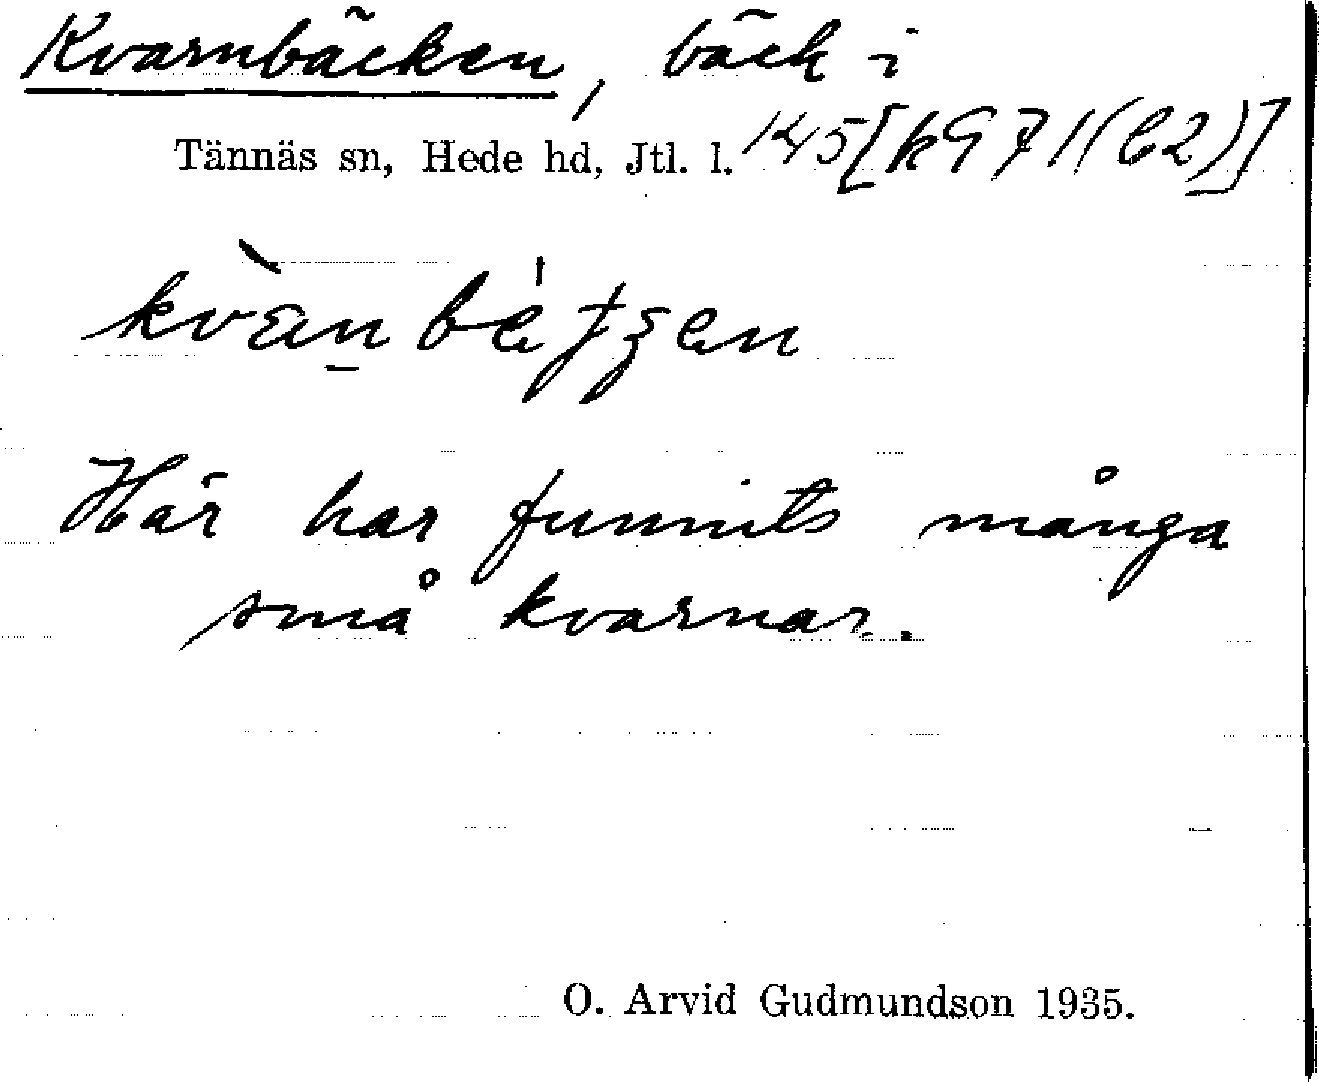 Kvarnbäcken, bäck i
Tännäs sn, Hede hd, Jtl. l. 145[k971(C2)]
Här har funnits många
små kvarnar.
O. Arvid Gudmundson 1935.